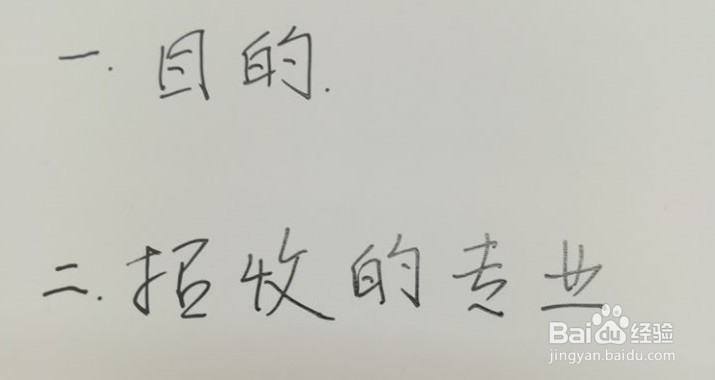 一.目的.
二.招收的专业
Baidu经验
jingyan.baidu.com